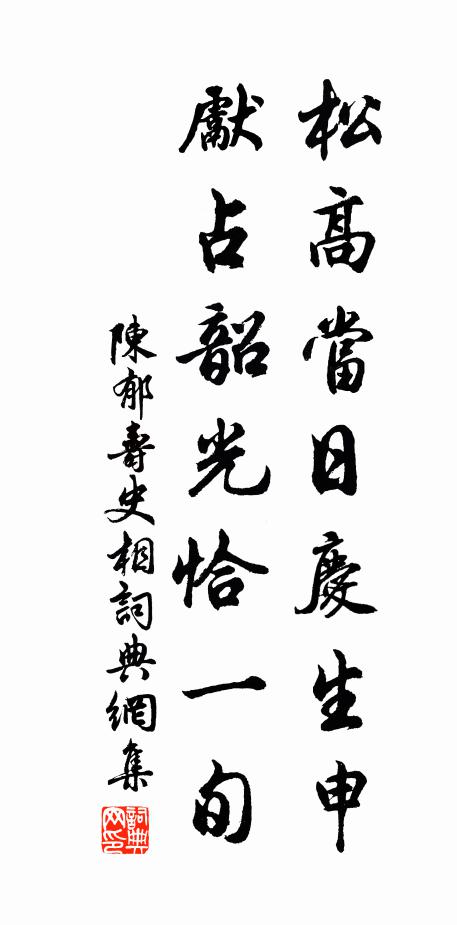 松高當日慶生申
獻占韶光恰一旬
陳郁壽史相詞典網集
詞典网印